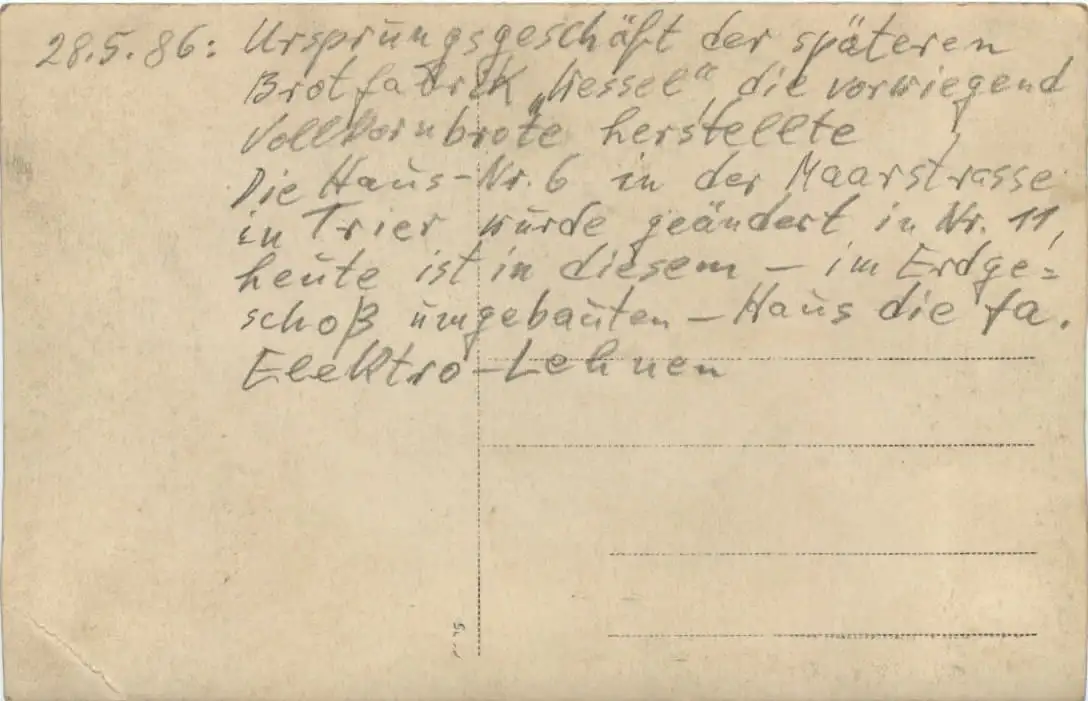 28.5.86: Ursprungsgeschäft der späteren
Brotfabrik „Wessel“, die vorwiegend
Vollkornbrote herstellte
Die Haus-Nr. 6 in der Maarstrasse
in Trier wurde geändert in Nr. 11,
heute ist in diesem – im Erdge=
schoß umgebauten – Haus die Fa.
Elektro-Lehnen